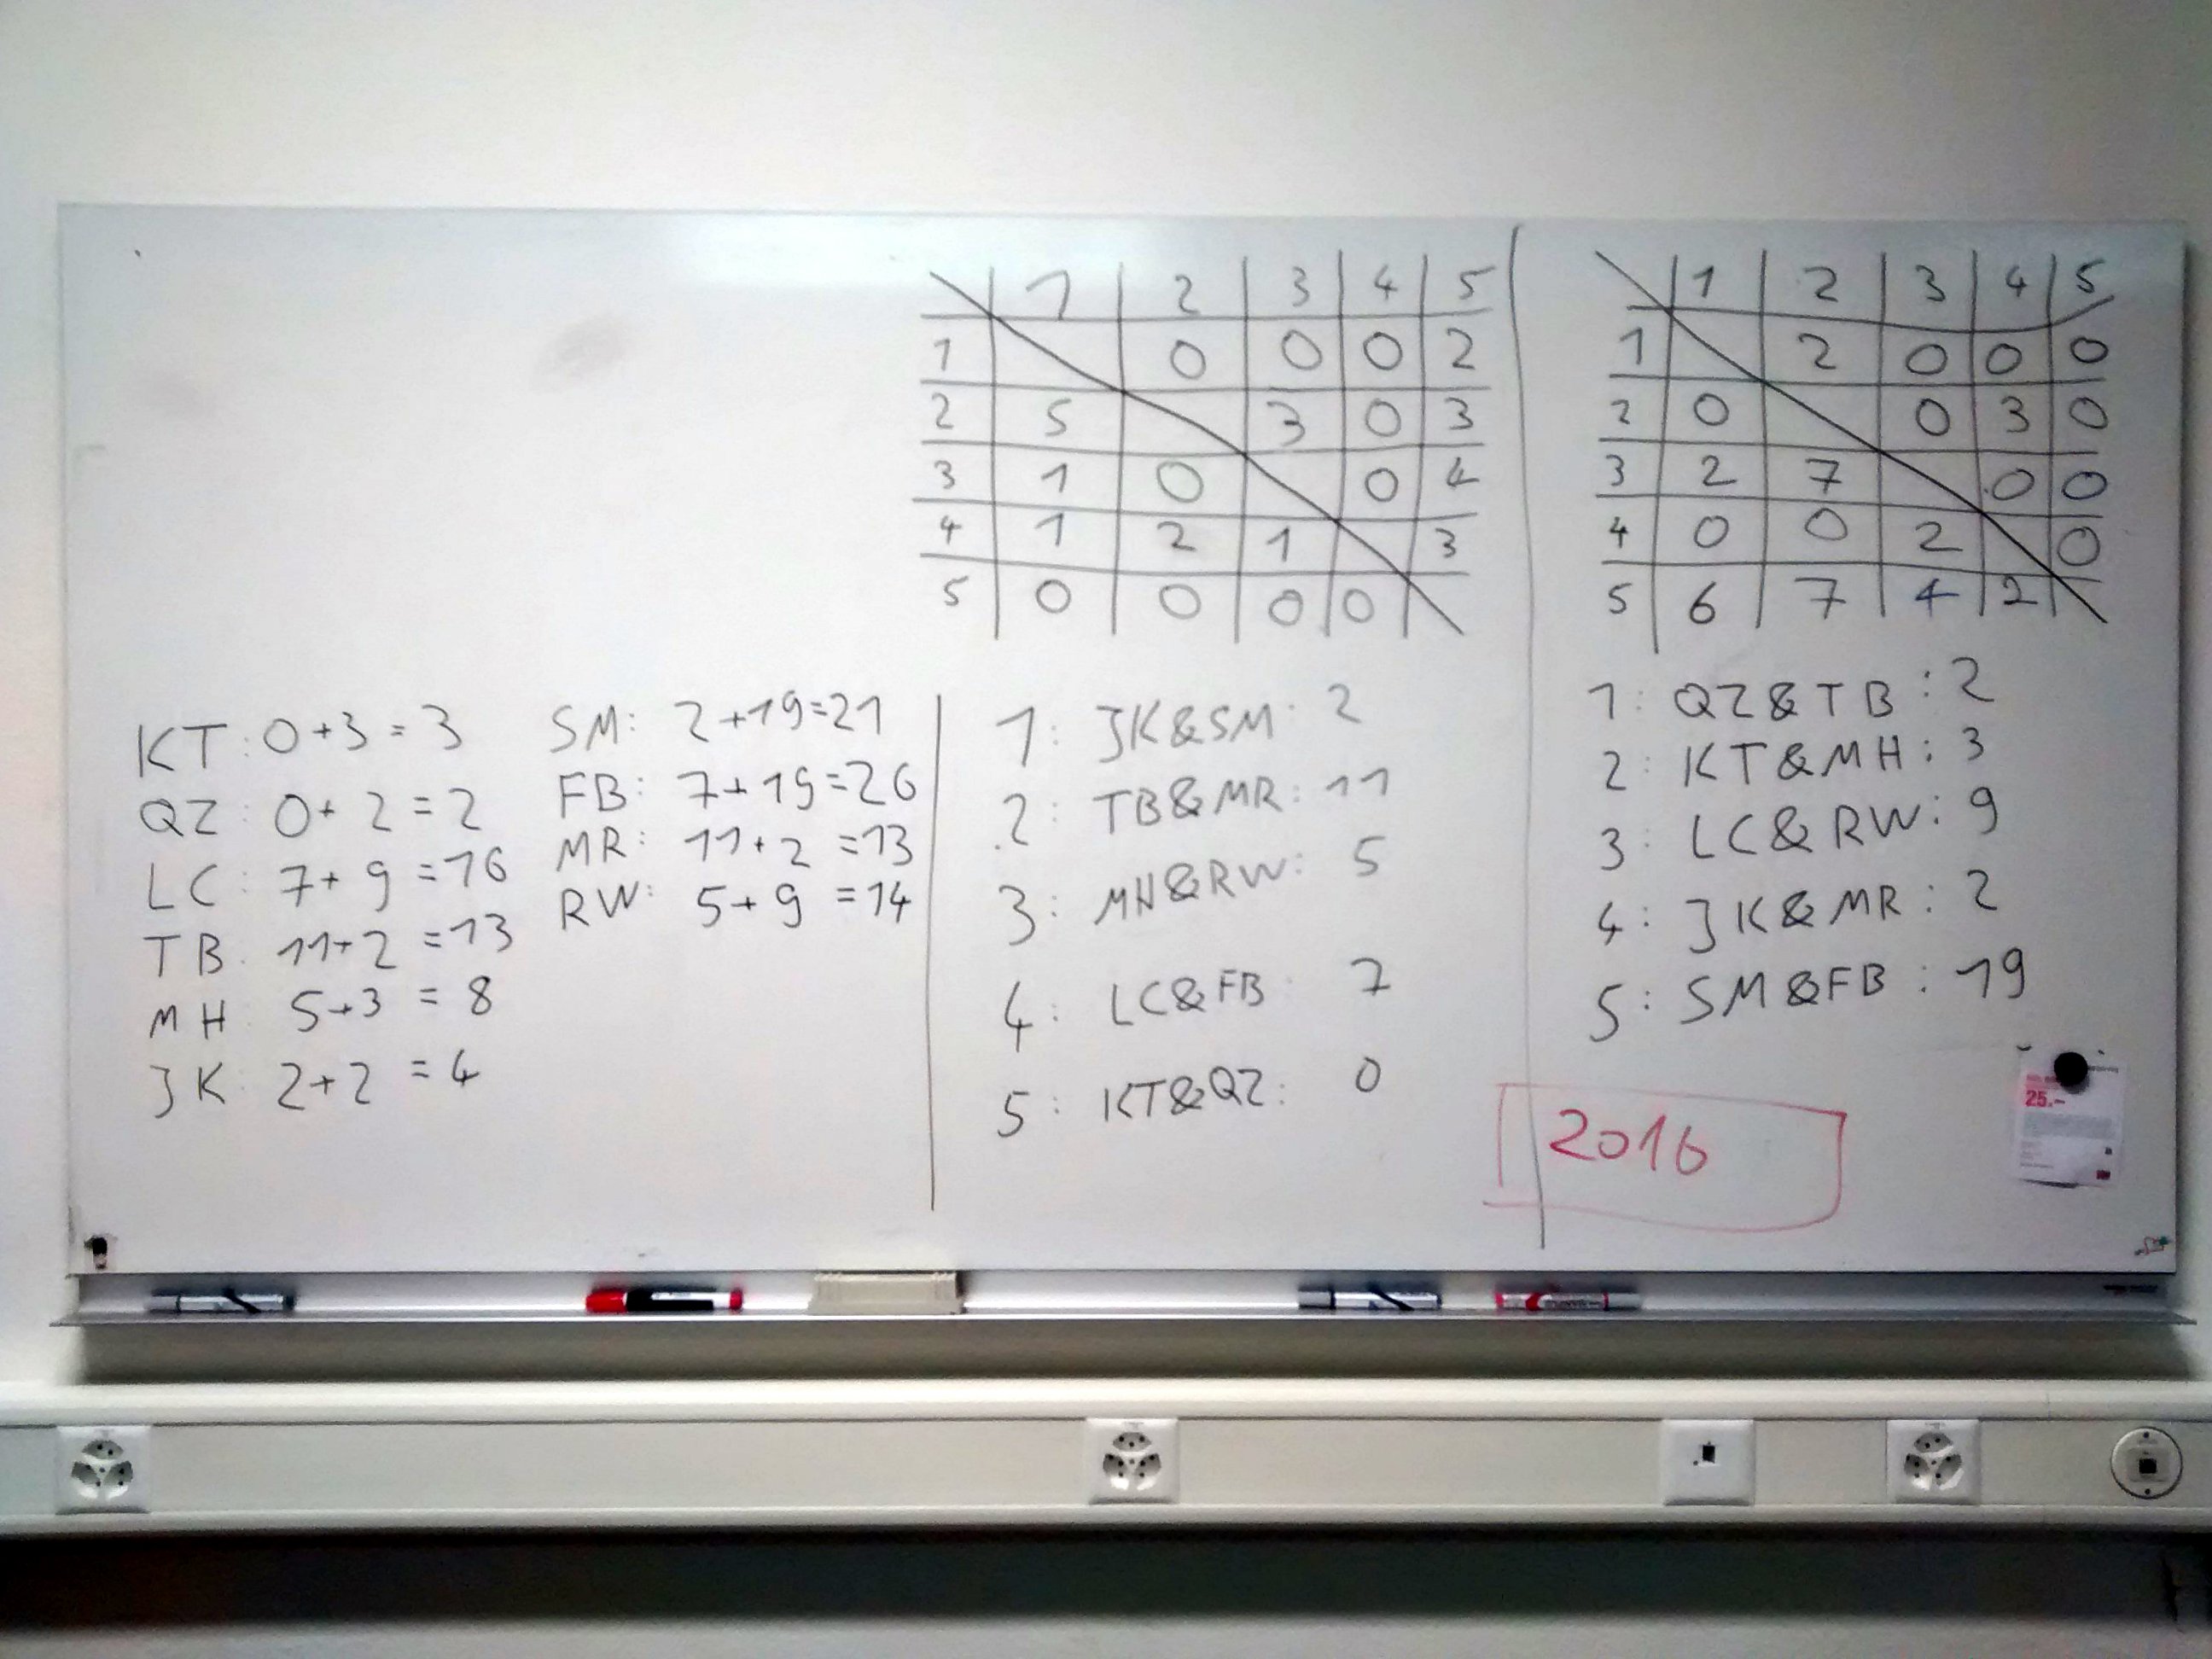 KT: 0+3 = 3
QZ: 0+2 = 2
LC: 7+9 = 16
TB: 11+2 = 13
MH: 5+3 = 8
JK: 2+2 = 4
SM: 2+19=21
FB: 7+19=26
MR: 11+2 =13
RW: 5+9 =14
1 2 3 4 5
1 0 0 0 2
2 5 3 0 3
3 1 0 0 4
4 1 2 1 3
5 0 0 0 0
1: JK&SM: 2
2: TB&MR: 11
3: MH&RW: 5
4: LC&FB: 7
5: KT&QZ: 0
1 2 3 4 5
1 2 0 0 0
2 0 0 3 0
3 2 7 0 0
4 0 0 2 0
5 6 7 4 2
1: QZ&TB: 2
2: KT&MH: 3
3: LC&RW: 9
4: JK&MR: 2
5: SM&FB: 19
2016
25.–